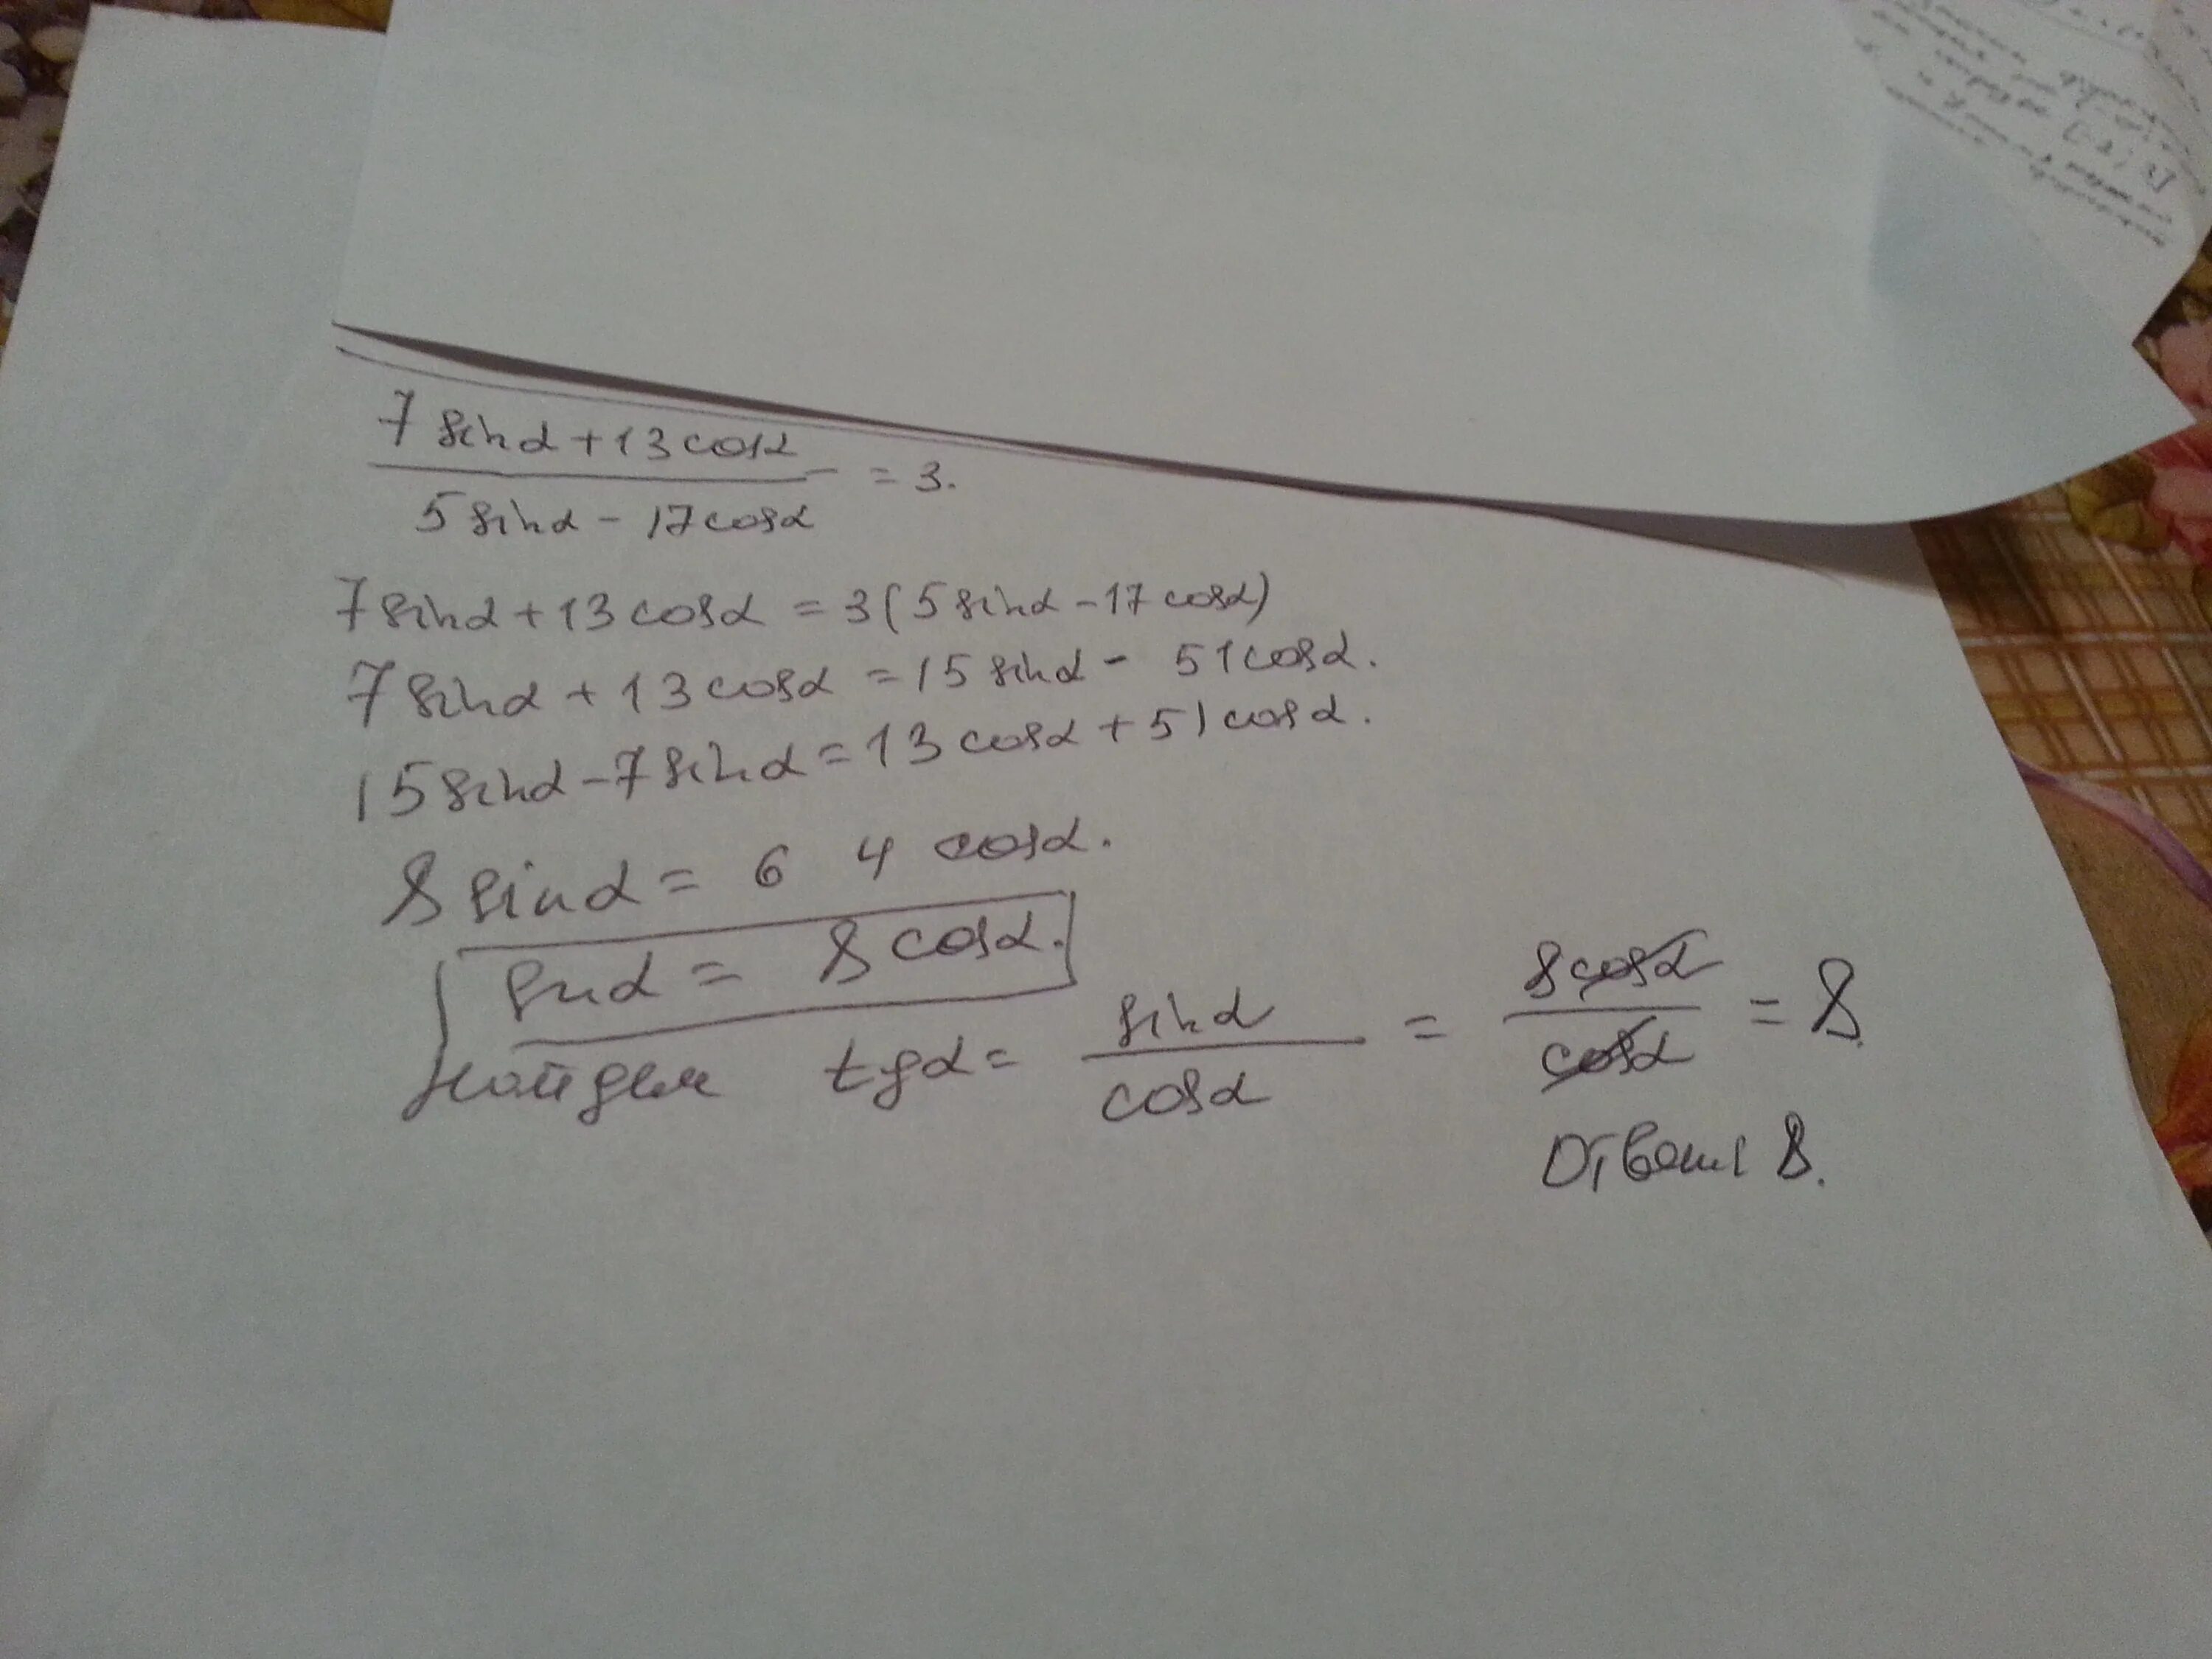 7 sin α + 13 cos α / 5 sin α - 17 cos α = 3.
7 sin α + 13 cos α = 3(5 sin α - 17 cos α)
7 sin α + 13 cos α = 15 sin α - 51 cos α.
15 sin α - 7 sin α = 13 cos α + 51 cos α.
8 sin α = 6 4 cos α.
sin α = 8 cos α.
найдем tg α = sin α / cos α = 8 cos α / cos α = 8.
Ответ 8.